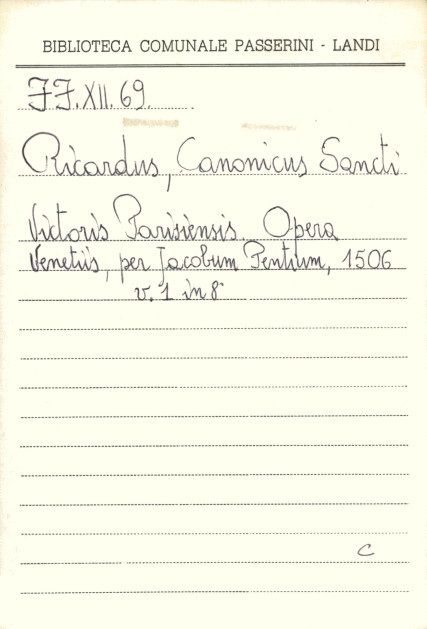 BIBLIOTECA COMUNALE PASSERINI - LANDI
JJ.XII.69.
Ricardus, Canonicus Sancti
Victoris Parisiensis. Opera
Venetiis, per Jacobum Pentium, 1506
v. 1 in 8°
C